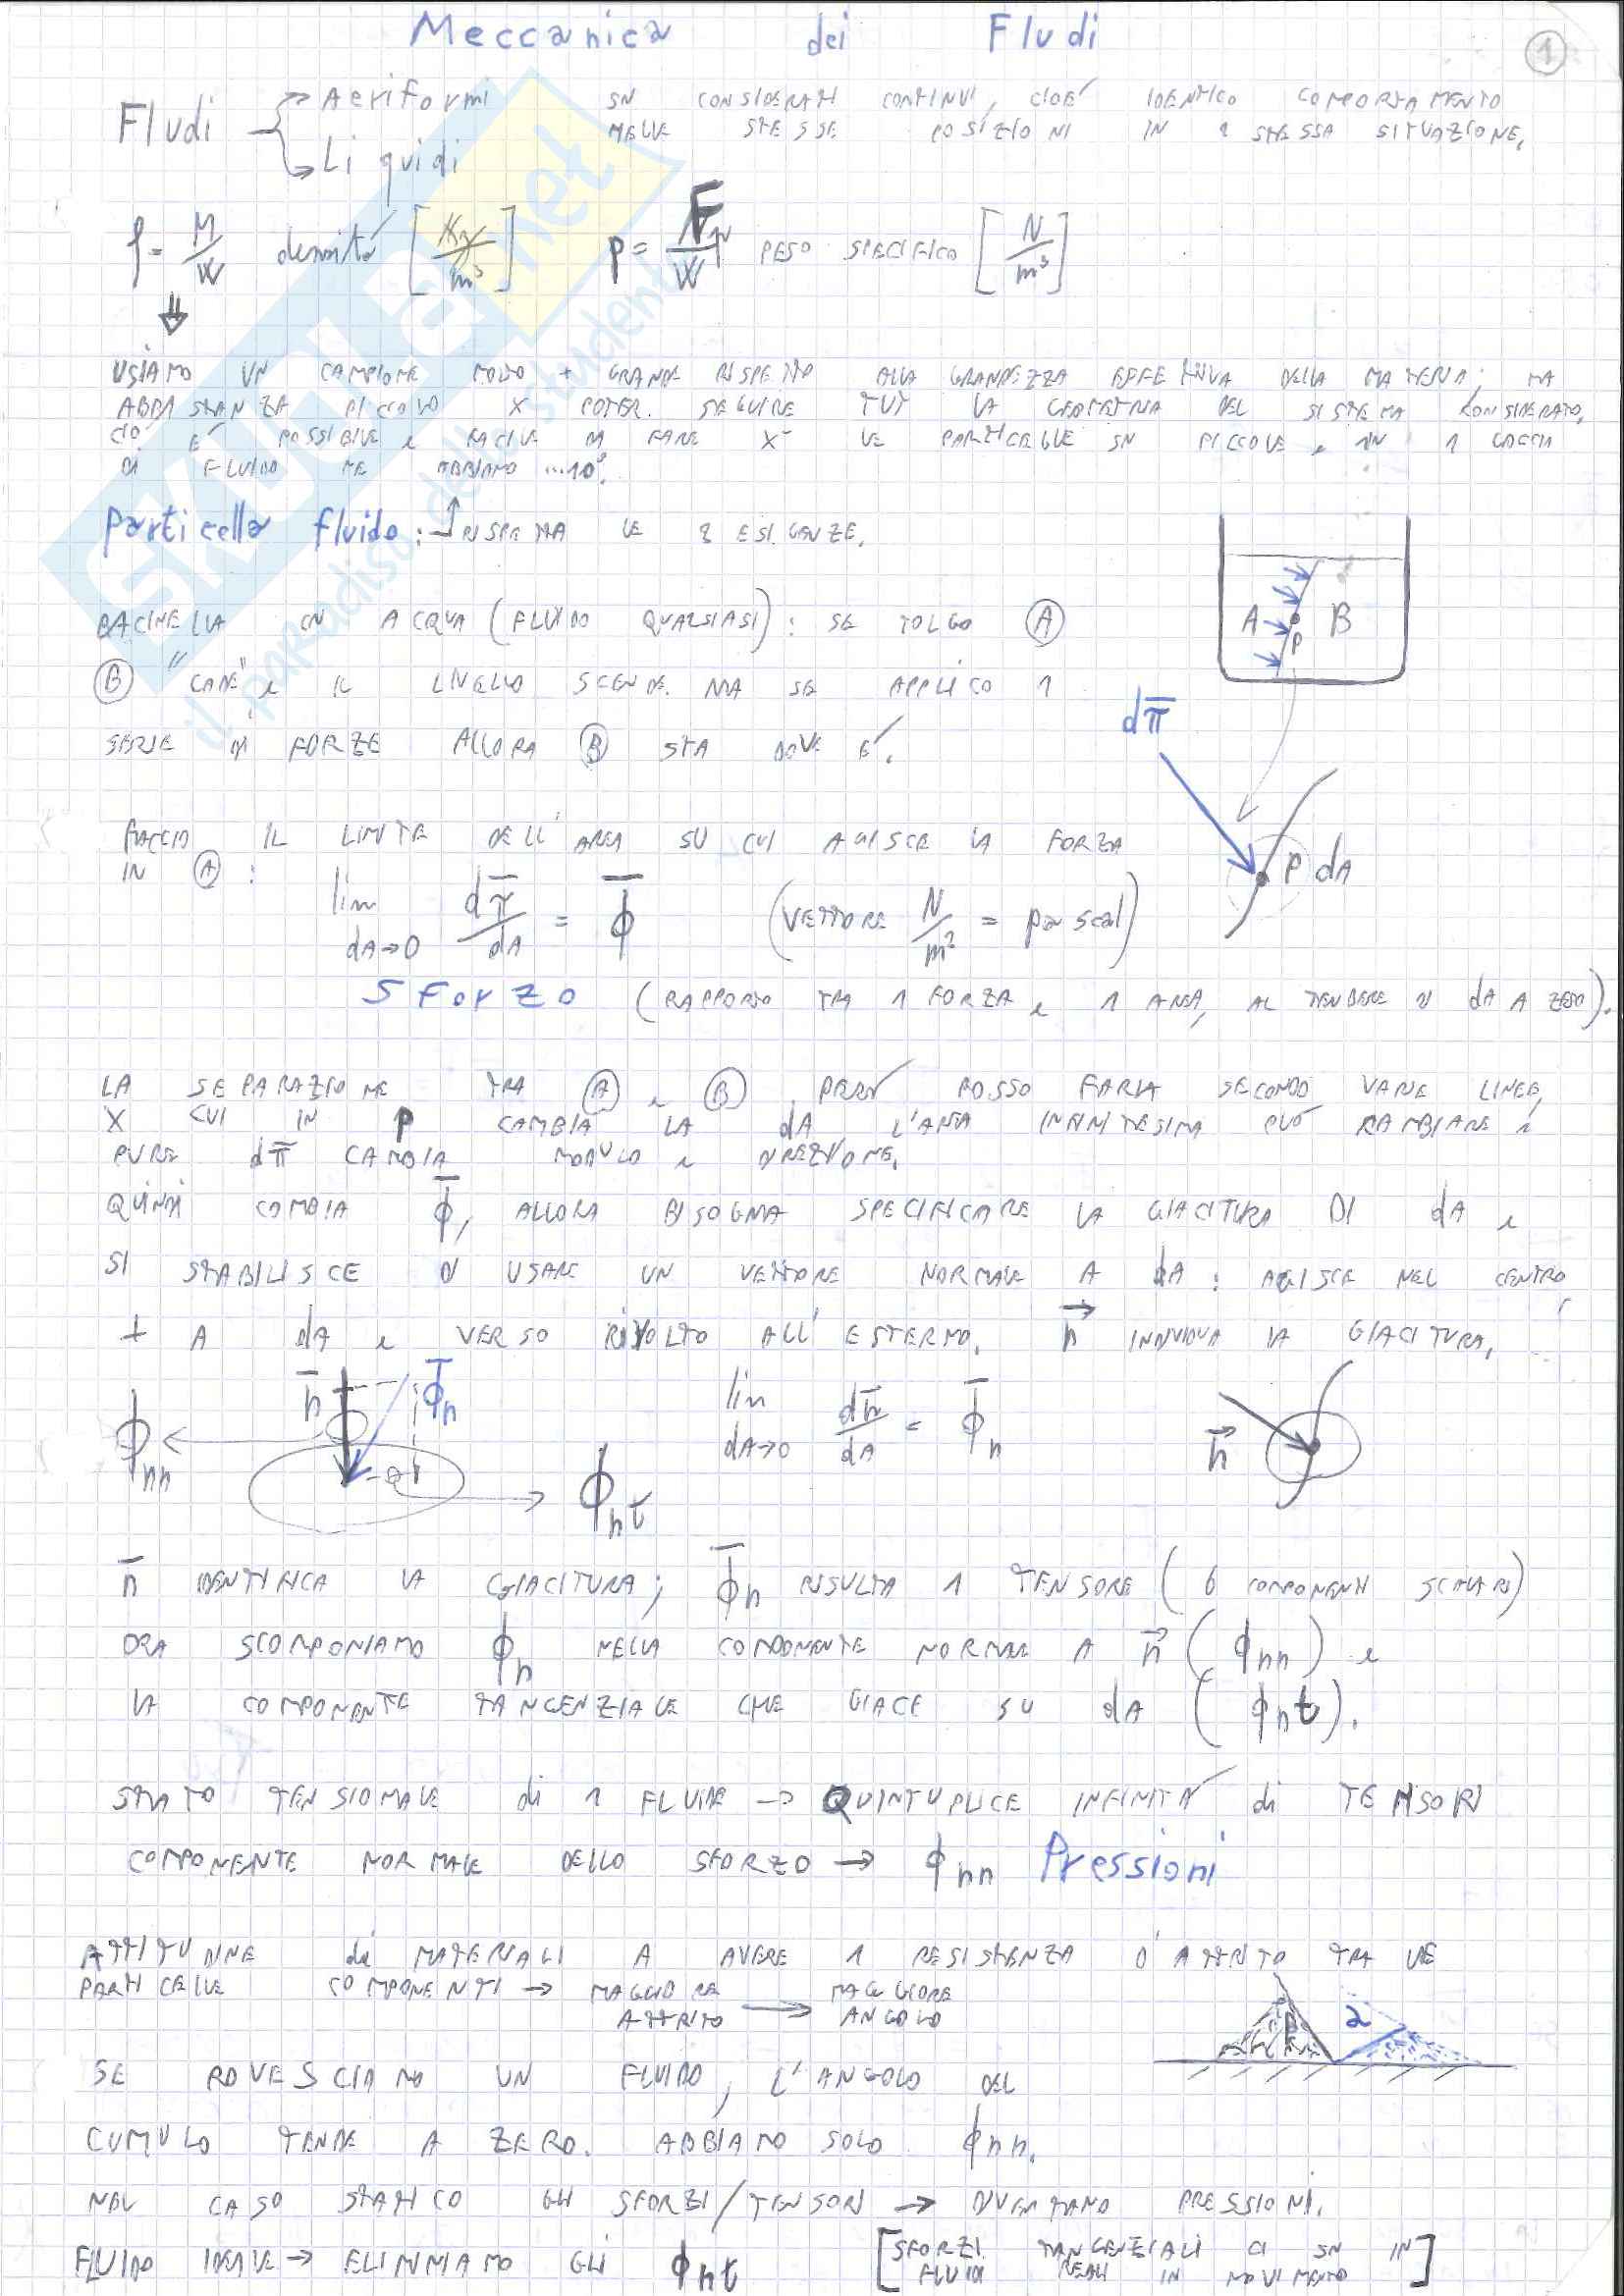 Meccanica dei Fludi
1
Fludi
Aeriformi
Liquidi
SN CONSIDERATI CONTINUI, CIOE' IDENTICO COMPORTAMENTO
NELLE STESSE POSIZIONI IN 1 STESSA SITUAZIONE.
ρ = M/W densità [Kg/m³] p = F/W PESO SPECIFICO [N/m³]
⇓
USIAMO UN CAMPIONE MOLTO + GRANDE RISPETTO ALLA GRANDEZZA EFFETTIVA DELLA MATERIA; MA
ABBASTANZA PICCOLO X POTER SEGUIRE TUT LA GEOMETRIA DEL SISTEMA CONSIDERATO,
CIO' E' POSSIBILE e FACILE DA FARE X' LE PARTICELLE SN PICCOLE e IN 1 GOCCIA
DI FLUIDO NE ABBIAMO ...10⁹.
Particella fluido: RISPETTA LE 2 ESIGENZE.
BACINELLA CN ACQUA (FLUIDO QUALSIASI): SE TOLGO A
B "CADE" e IL LIVELLO SCENDE. MA SE APPLICO 1
SERIE DI FORZE ALLORA B STA DOVE E'.
A B
P
dπ̅
P dA
FACCIO IL LIMITE DELL'AREA SU CUI AGISCE LA FORZA
IN A :
lim dA→0 dπ̅/dA = ϕ̅ (VETTORE N/m² = pascal)
SForzo (RAPPORTO TRA 1 FORZA e 1 AREA, AL TENDERE DI dA A ZERO).
LA SEPARAZIONE TRA A e B PERO' POSSO FARLA SECONDO VARIE LINEE,
X CUI IN P CAMBIA LA dA L'AREA INFINITESIMA PUO' CAMBIARE e
PURE dπ̅ CAMBIA MODULO e DIREZIONE.
QUINDI CAMBIA ϕ̅, ALLORA BISOGNA SPECIFICARE LA GIACITURA DI dA e
SI STABILISCE DI USARE UN VETTORE NORMALE A dA: AGISCE NEL CENTRO,
⊥ A dA e VERSO RIVOLTO ALL'ESTERNO. n⃗ INDIVIDUA LA GIACITURA.
n̅ ϕ̅n
ϕnn
ϕnt
lim dA→0 dπ̅/dA = ϕ̅n
n⃗
n̅ IDENTIFICA LA GIACITURA; ϕ̅n RISULTA 1 TENSORE (6 COMPONENTI SCALARI)
ORA SCOMPONIAMO ϕn NELLA COMPONENTE NORMALE A n⃗ (ϕnn) e
LA COMPONENTE TANGENZIALE CHE GIACE SU dA (ϕnt).
STATO TENSIONALE di 1 FLUIDO → QUINTUPLICE INFINITA' di TENSORI
COMPONENTE NORMALE DELLO SFORZO → ϕnn Pressioni
ATTITUDINE di MATERIALI A AVERE 1 RESISTENZA D'ATTRITO TRA LE
PARTICELLE COMPONENTI → MAGGIORE ATTRITO → MAGGIORE ANGOLO
SE ROVESCIAMO UN FLUIDO, L'ANGOLO DEL
CUMULO TENDE A ZERO. ABBIAMO SOLO ϕnn.
NEL CASO STATICO GLI SFORZI/TENSORI → DIVENTANO PRESSIONI.
FLUIDO IDEALE → ELIMINIAMO GLI ϕnt [SFORZI TANGENZIALI CI SN IN
FLUIDI REALI IN MOVIMENTO]
SKUOLA.net
il paradiso dello studente